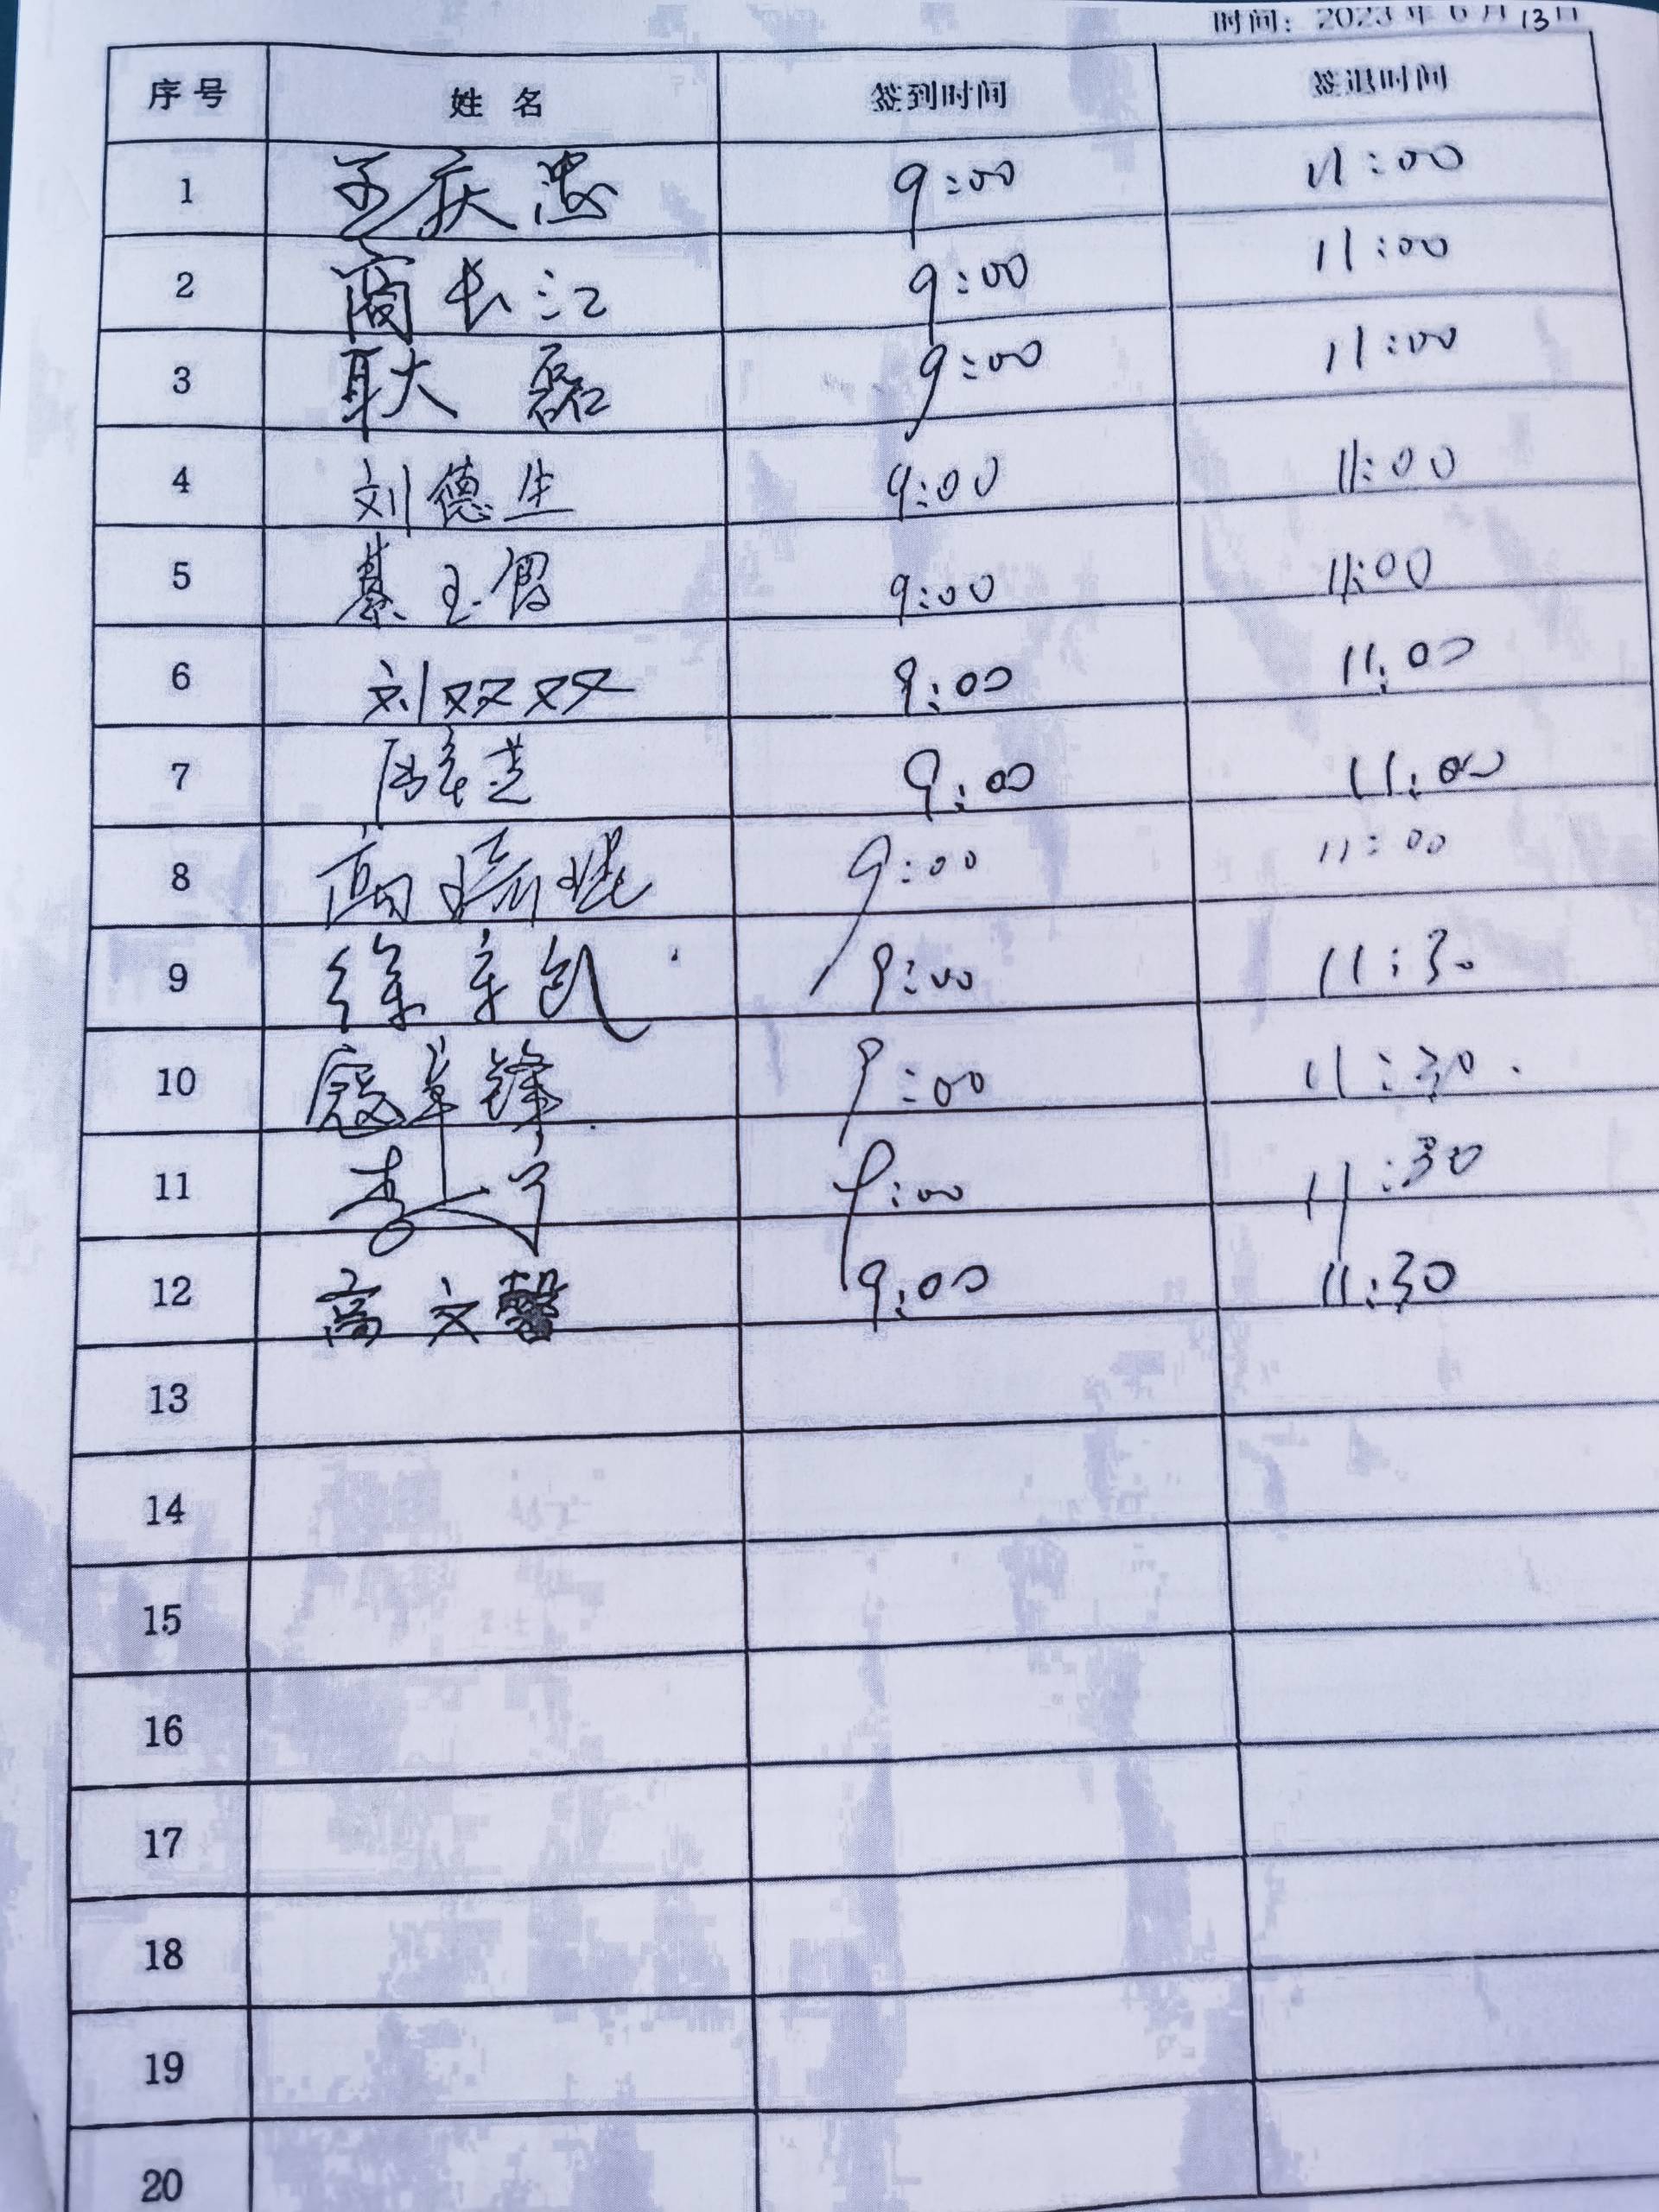 时间：2023年6月13日
序号 姓名 签到时间 签退时间
1 孟庆忠 9:00 11:00
2 商长江 9:00 11:00
3 耿磊 9:00 11:00
4 刘德生 9:00 11:00
5 9:00 11:00
6 刘双双 9:00 11:00
7 9:00 11:00
8 9:00 11:00
9 徐 9:00 11:30
10 寇 锋 9:00 11:30
11 9:00 11:30
12 高文馨 9:00 11:30
13
14
15
16
17
18
19
20